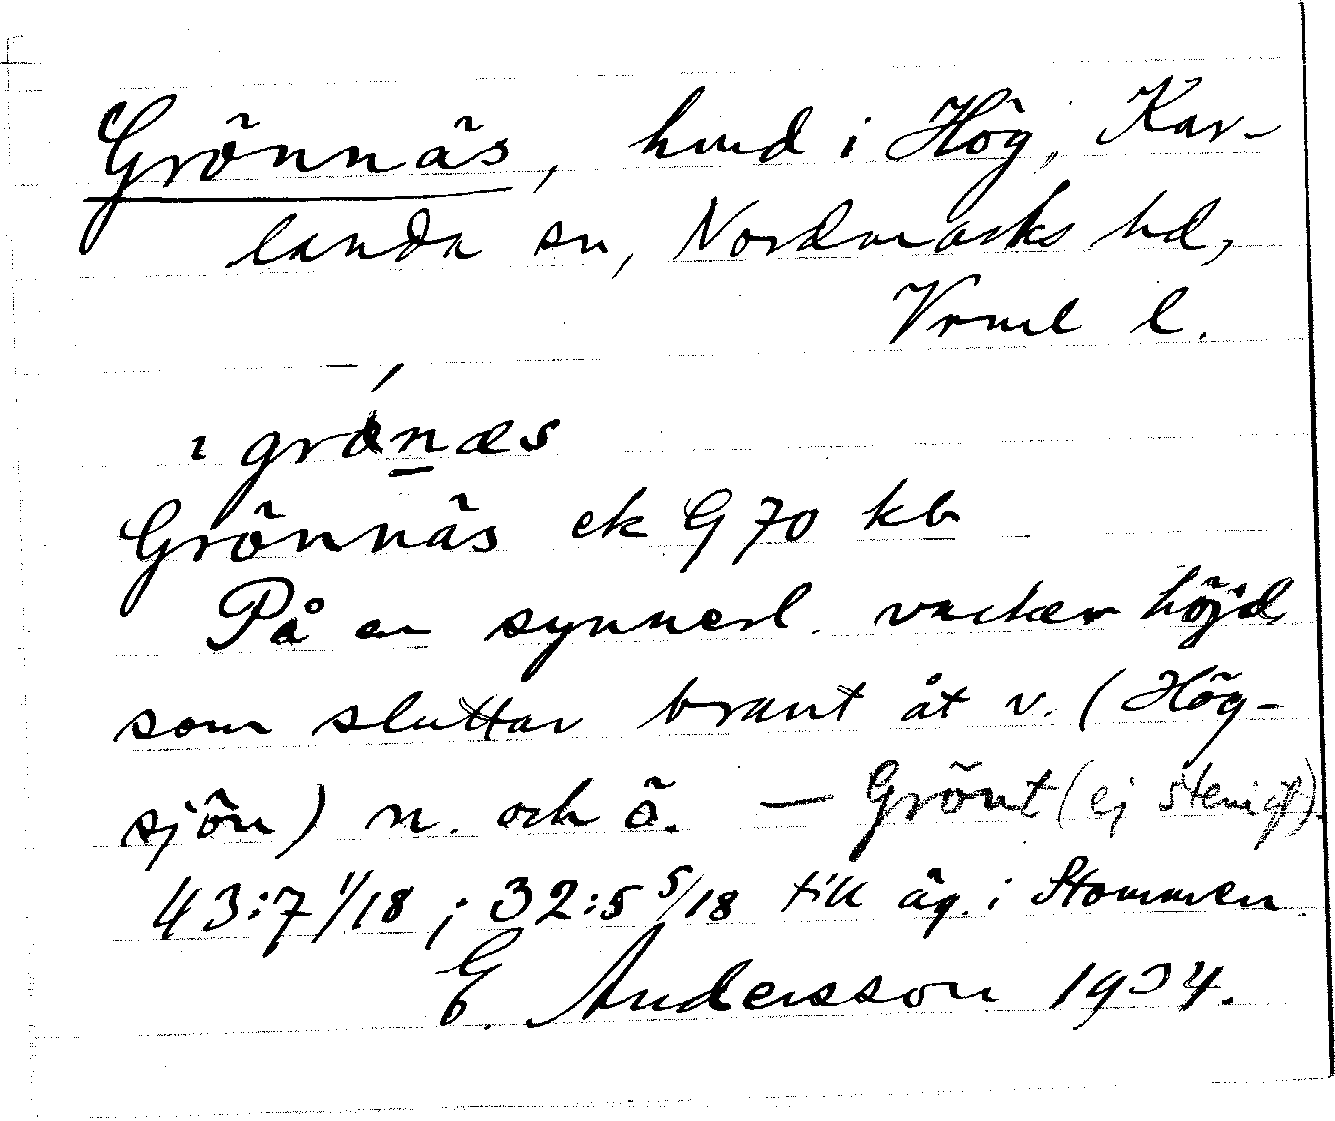 Grönnäs, hmd i Hög, Kar-
landa sn, Nordmarks hd,
Vrml l.
ɩ grǿnæs
Grönnäs ek G 70 kb
På en synnerl. vacker höjd
som sluttar brant åt v. (Hög-
sjön) n. och ö. — Grönt (ej stenigt).
43:7 1/18 ; 32:5 5/18 till äg. i Stommen.
E. Andersson 1934.